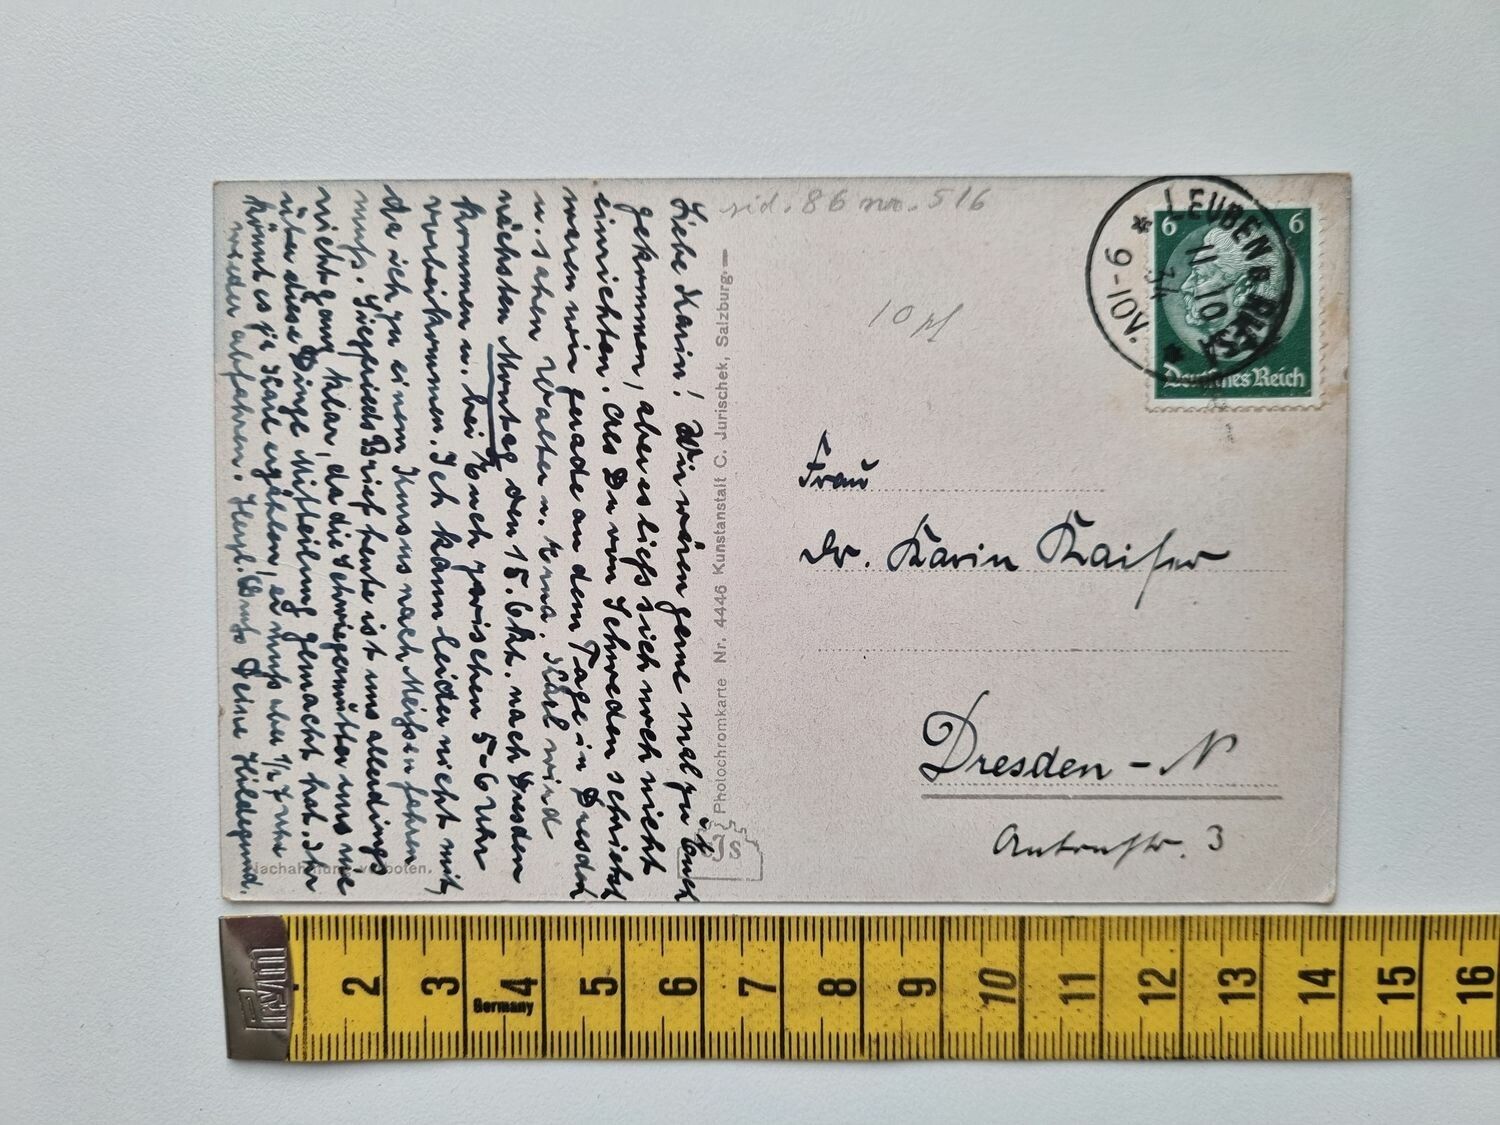 Liebe Karin! Wir wären gerne mal zu Euch
gekommen, aber es liess sich noch nicht
einrichten. Als Du von Schweden schriebst
waren wir gerade an dem Tage in Dresden
u. sahen Walter u. Erna. Karl wird
nächsten Montag den 15. Okt. nach Dresden
kommen u. bei Euch zwischen 5-6 Uhr
vorbeikommen. Ich kann leider nicht mit,
da ich zu einem Kursus nach Meißen fahren
muss. Siegfrieds Brief heute ist uns allerdings
nicht ganz klar, da die Schwiegermutter uns nie
über diese Dinge Mitteilung gemacht hat. Ihr
könnt es ja Karl erzählen, er muss aber 1/2 7 Uhr
wieder abfahren. Herzl. Gruß Deine Hildegund.
Nachahmung verboten.
Photochromkarte Nr. 4446 Kunstanstalt C. Jurischek, Salzburg.
JS
sid. 86 nr. 516
10 pf
LEUBEN B. RIESA
11 10
34
9-10 V.
6 6
Deutsches Reich
Frau
Dr. Karin Kaiser
Dresden - N
Antonstr. 3
Pom
2 3 4 5 6 7 8 9 10 11 12 13 14 15 16
Germany